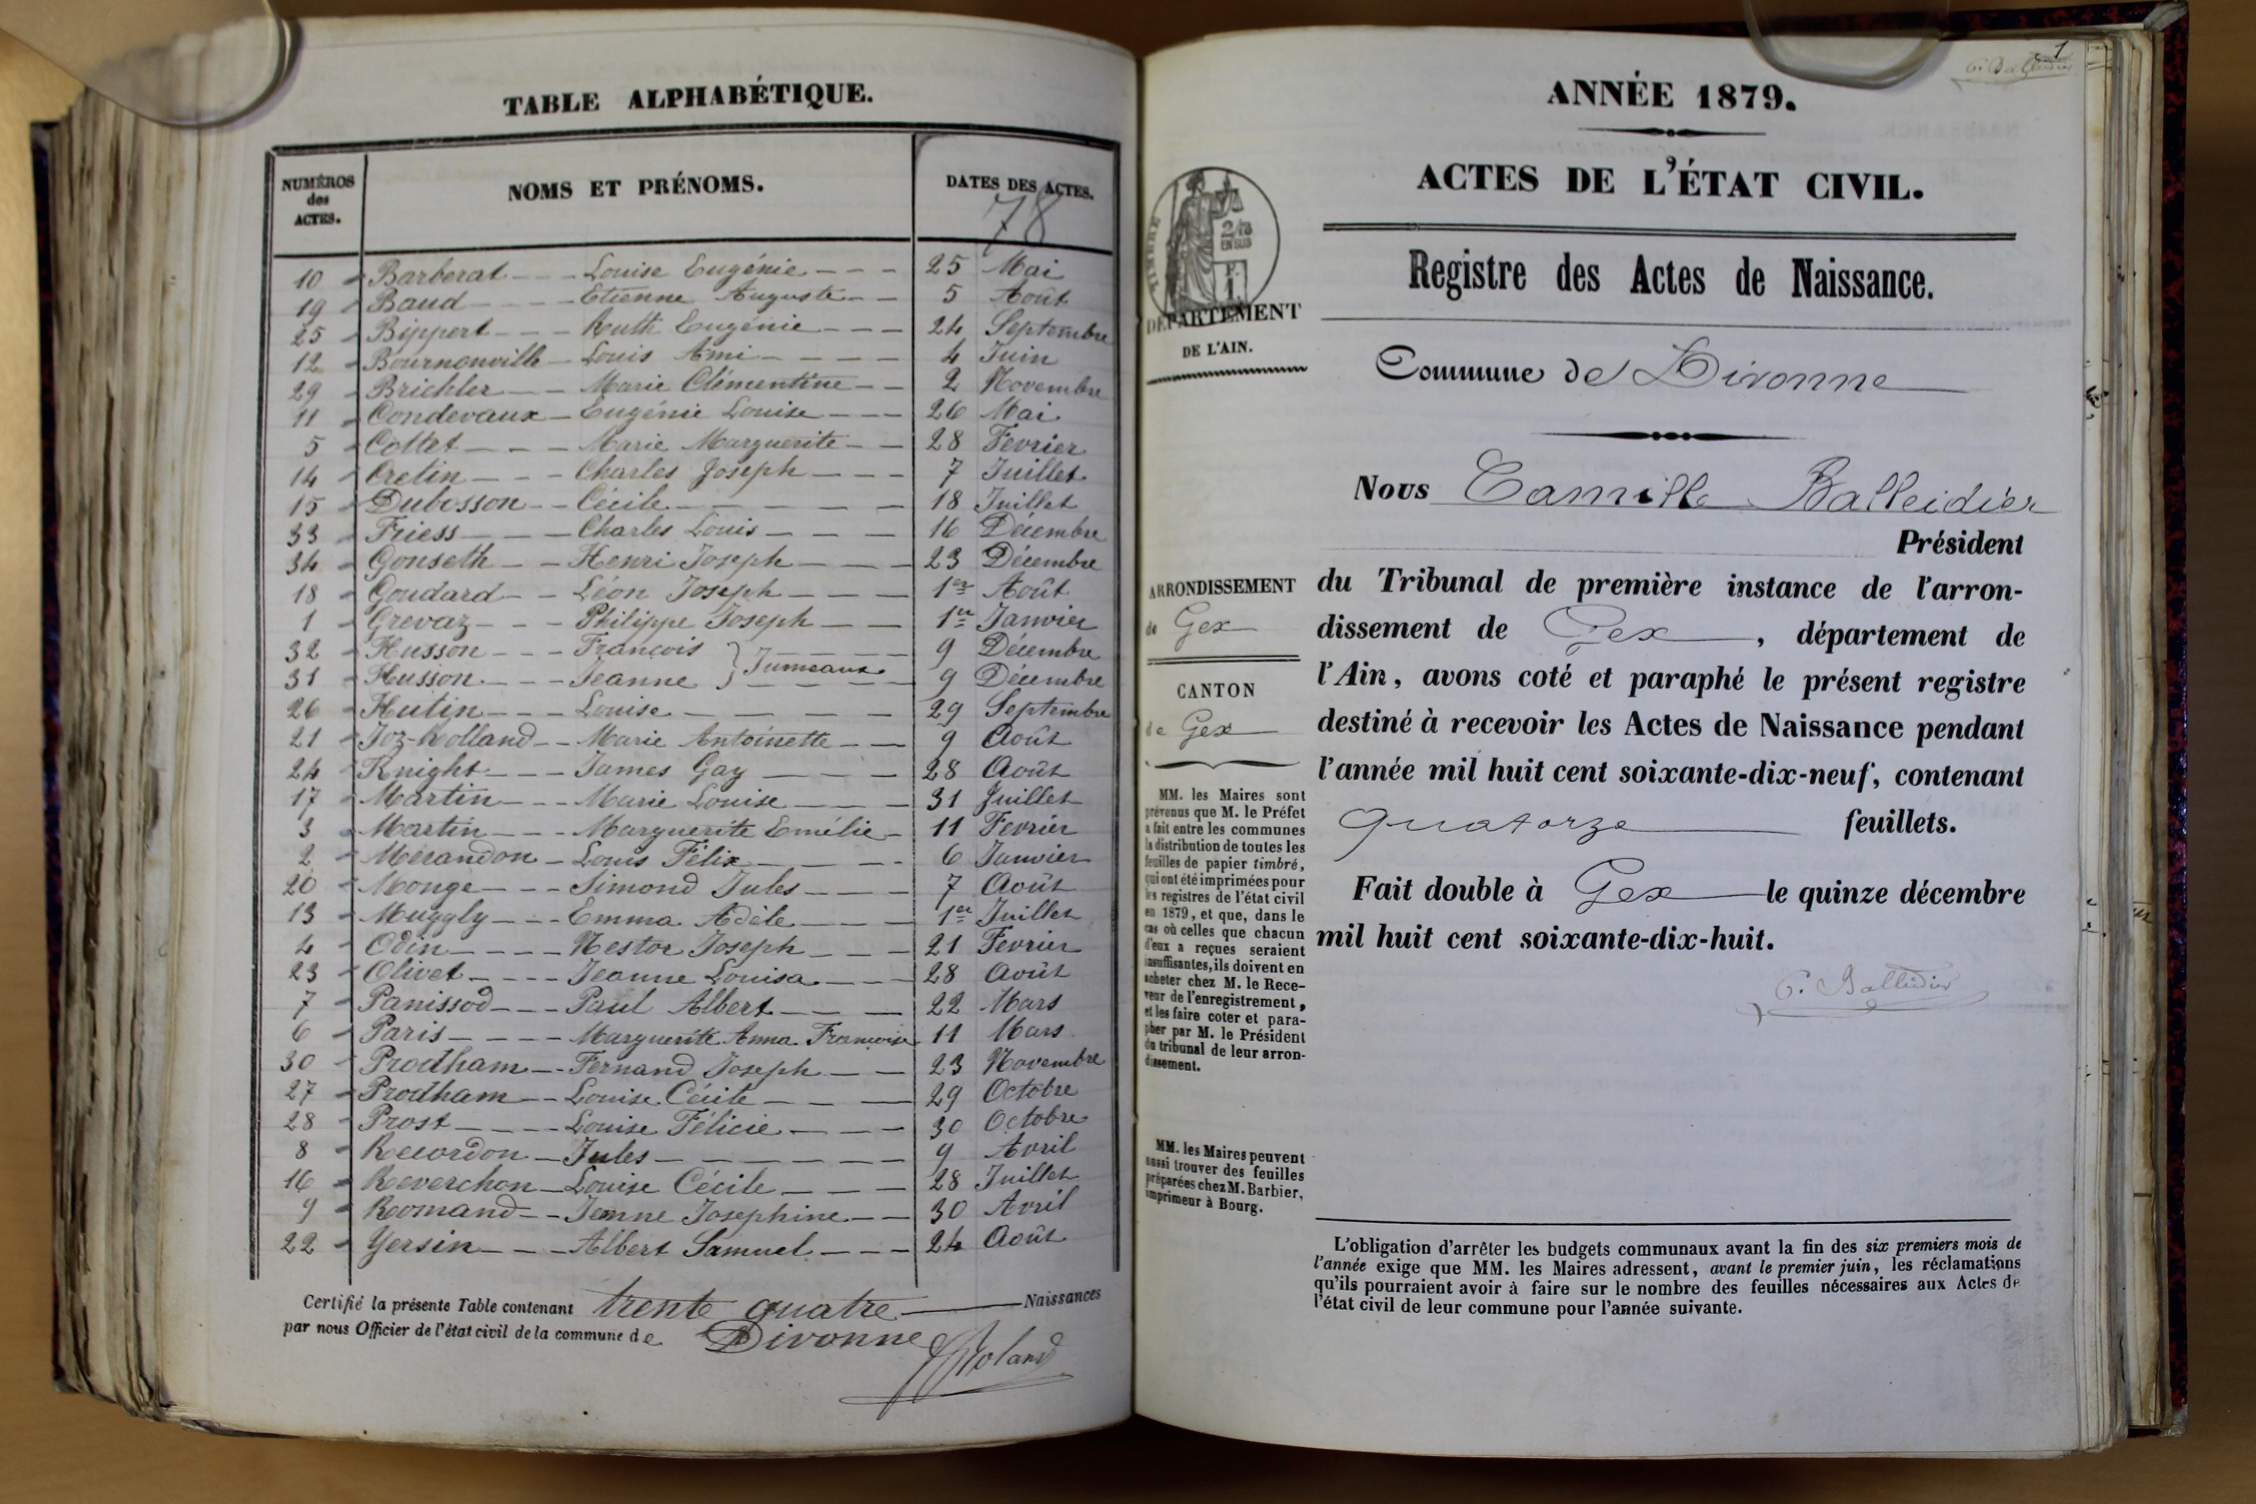 TABLE ALPHABÉTIQUE.
NUMÉROS des ACTES. NOMS ET PRÉNOMS. DATES DES ACTES.
78
10 Barberat Louise Eugénie 25 Mai
19 Baud Etienne Auguste 5 Août
25 Bippert Ruth Eugénie 24 Septembre
12 Bournonville Louis Ami 4 Juin
29 Brichler Marie Clémentine 2 Novembre
11 Condevaux Eugénie Louise 26 Mai
5 Cottet Marie Marguerite 28 Fevrier
14 Cretin Charles Joseph 7 Juillet
15 Dubosson Cécile 18 Juillet
33 Friess Charles Louis 16 Décembre
34 Gonseth Henri Joseph 23 Décembre
18 Goudard Léon Joseph 1er Août
1 Grevaz Philippe Joseph 1er Janvier
32 Husson François } Jumeaux 9 Décembre
31 Husson Jeanne } 9 Décembre
26 Hutin Louise 29 Septembre
21 Joz-Rolland Marie Antoinette 9 Août
24 Knight James Gay 28 Août
17 Martin Marie Louise 31 Juillet
3 Martin Marguerite Emélie 11 Fevrier
2 Mérandon Louis Félix 6 Janvier
20 Monge Simond Jules 7 Août
13 Muggly Emma Adèle 1er Juillet
4 Odin Nestor Joseph 21 Fevrier
23 Olivet Jeanne Louisa 28 Août
7 Panissod Paul Albert 22 Mars
6 Paris Marguerite Anna Françoise 11 Mars
30 Prodham Fernand Joseph 23 Novembre
27 Prodham Louise Cécile 29 Octobre
28 Prost Louise Félicie 30 Octobre
8 Recordon Jules 9 Avril
16 Reverchon Louise Cécile 28 Juillet
9 Romand Jeanne Josephine 30 Avril
22 Yersin Albert Samuel 24 Août
Certifié la présente Table contenant trente quatre Naissances
par nous Officier de l'état civil de la commune de Divonne
Roland
1
C. Balleidier
ANNÉE 1879.
ACTES DE L'ÉTAT CIVIL.
Registre des Actes de Naissance.
TIMBRE
2/10
EN SUS
DÉPARTEMENT
DE L'AIN.
Commune de Divonne
Nous Camille Balleidier
Président
du Tribunal de première instance de l'arron-
dissement de Gex, département de
l'Ain, avons coté et paraphé le présent registre
destiné à recevoir les Actes de Naissance pendant
l'année mil huit cent soixante-dix-neuf, contenant
quatorze feuillets.
Fait double à Gex le quinze décembre
mil huit cent soixante-dix-huit.
C. Balleidier
ARRONDISSEMENT
de Gex
CANTON
de Gex
MM. les Maires sont
prévenus que M. le Préfet
a fait entre les communes
la distribution de toutes les
feuilles de papier timbré,
qui ont été imprimées pour
les registres de l'état civil
en 1879, et que, dans le
cas où celles que chacun
d'eux a reçues seraient
insuffisantes, ils doivent en
acheter chez M. le Rece-
veur de l'enregistrement,
et les faire coter et para-
pher par M. le Président
du tribunal de leur arron-
dissement.
MM. les Maires peuvent
aussi trouver des feuilles
préparées chez M. Barbier,
imprimeur à Bourg.
L'obligation d'arrêter les budgets communaux avant la fin des six premiers mois de
l'année exige que MM. les Maires adressent, avant le premier juin, les réclamations
qu'ils pourraient avoir à faire sur le nombre des feuilles nécessaires aux Actes de
l'état civil de leur commune pour l'année suivante.